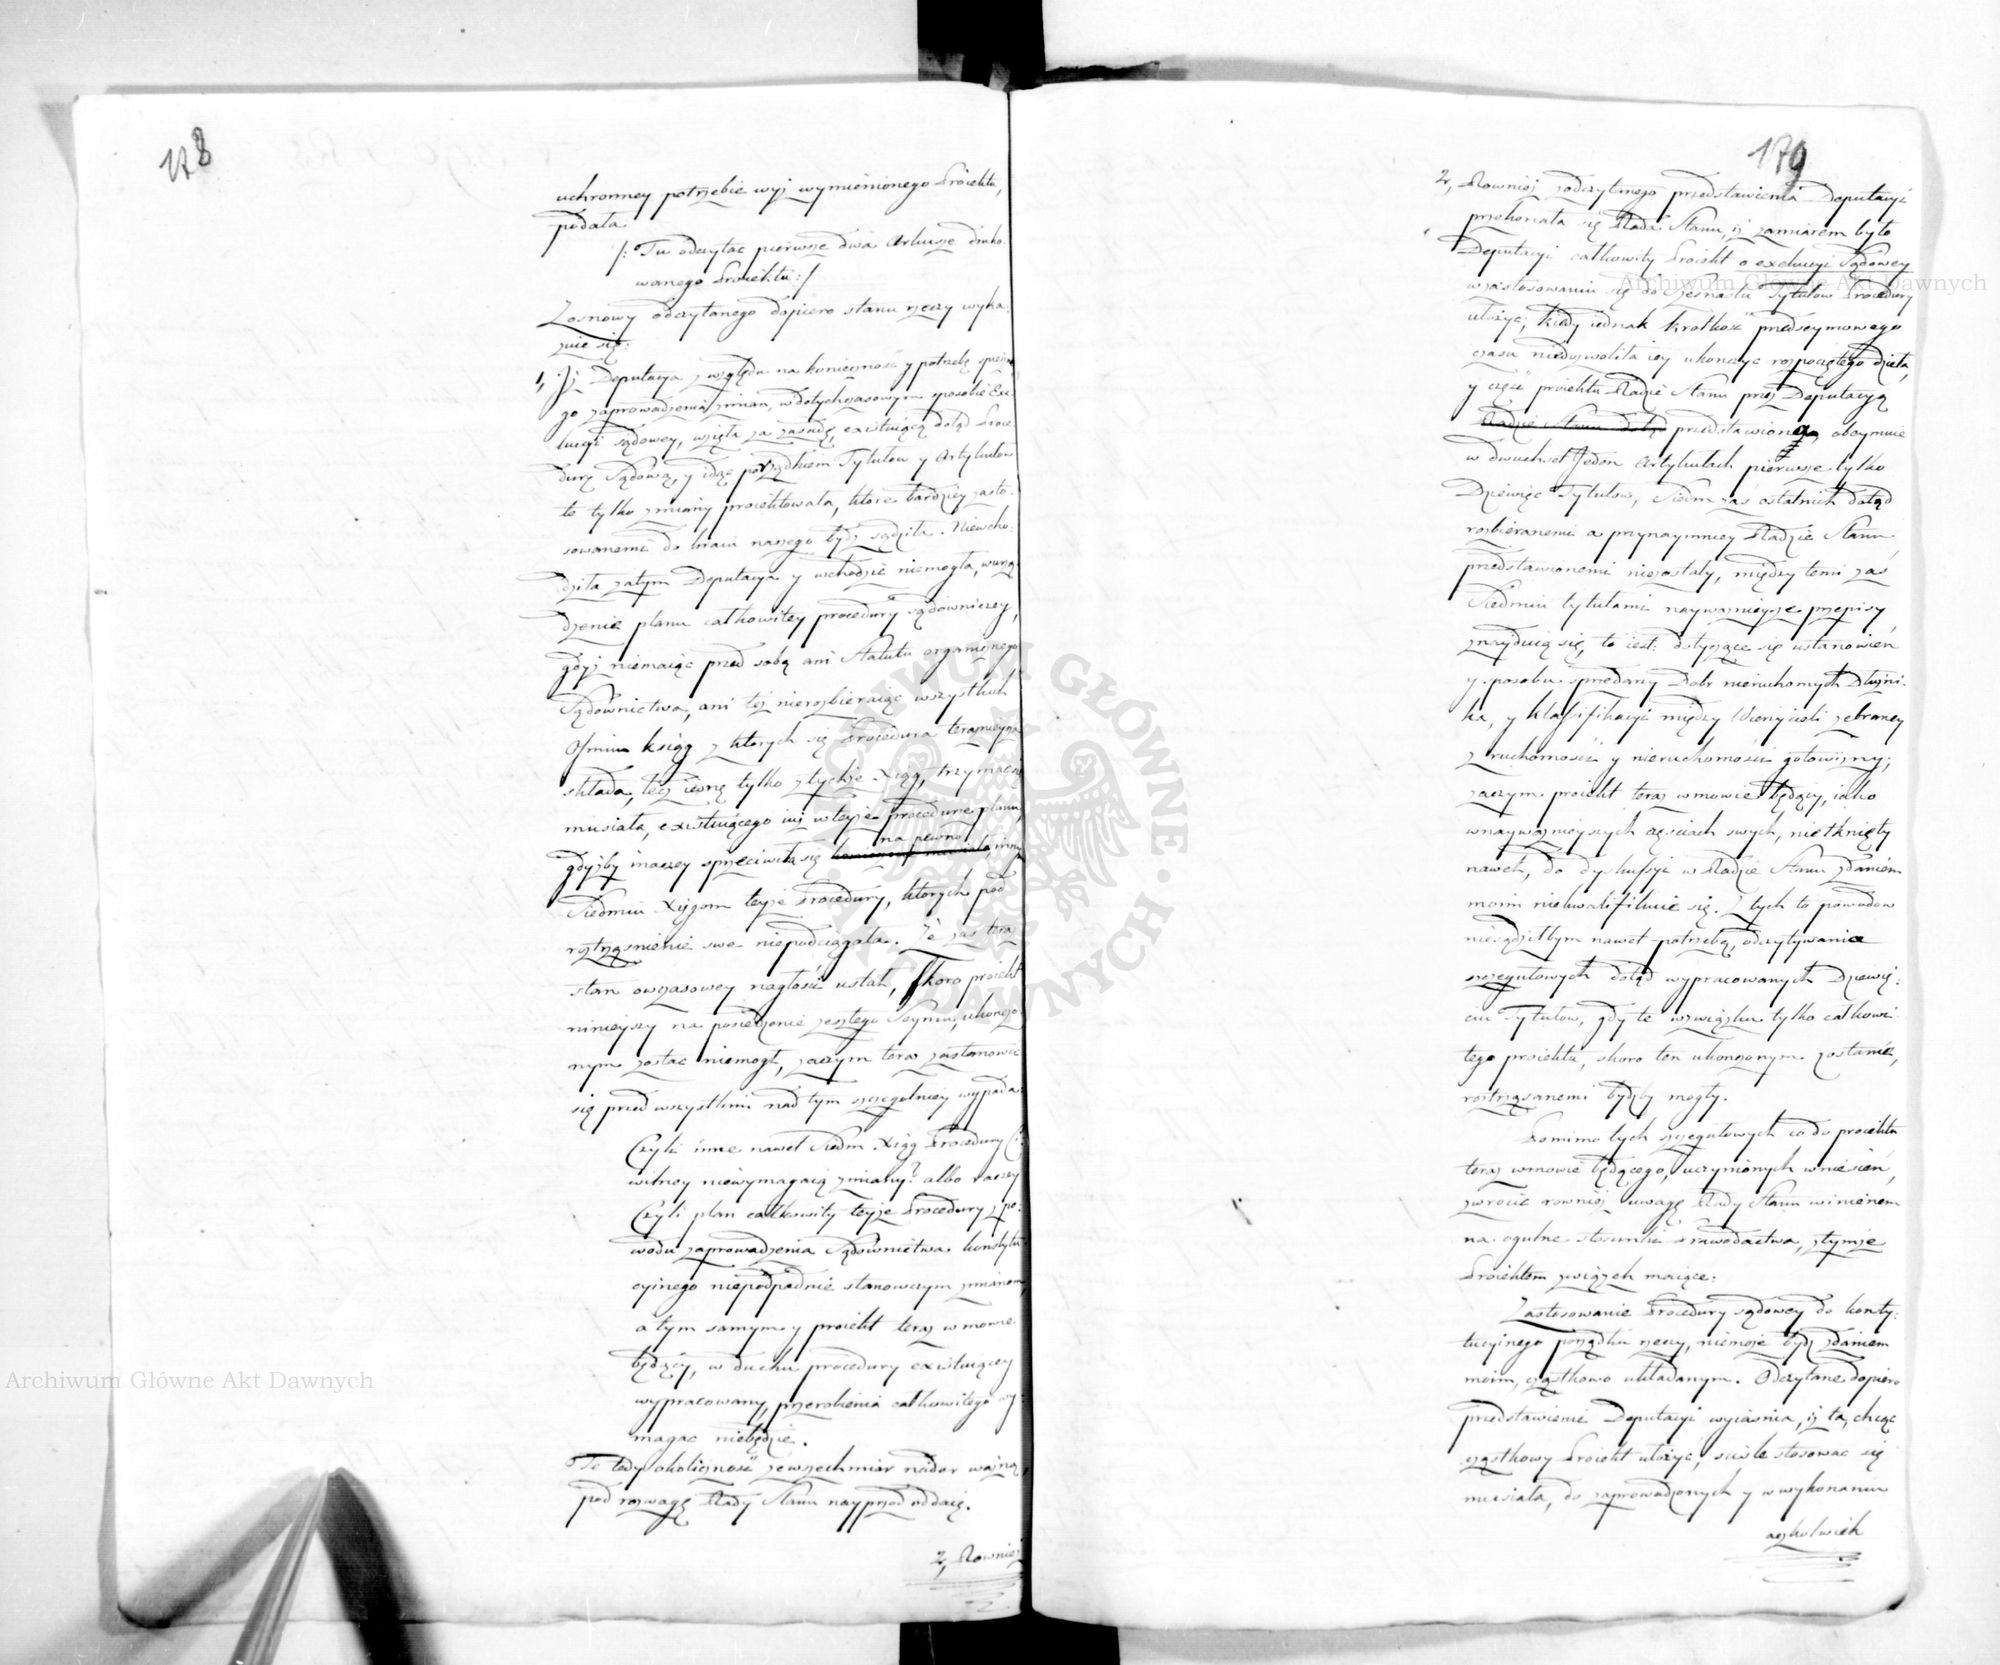 178
uchronney potrzebie wyż wymienionego Proiektu,
podała
/: Tu odczytac pierwsze dwa Arkusze druko-
wanego Proiektu :/
Z osnowy odczytanego dopiero stanu rzeczy wyka-
zuie się:
1, Iż Deputacya z względu na konieczność y potrzebę spieszne-
go zaprowadzenia zmian, w dotychczasowym sposobie Exe-
kucyi sądowey, wzięła za zasadę, existuiącą dotąd Proce-
durę Sądową, y idąc porządkiem Tytułow y Artykułow
te tylko zmiany proiektowała, ktore bardziey zasto-
sowanemi do kraiu naszego bydź sądziła. Niewcho-
dziła zatym Deputacya y wchodzić niemogła, w urzą-
dzenie planu całkowitey procedury sądowniczey,
gdyż niemaiąc przed sobą ani Statutu organicznego
Sądownictwa, ani też nierozbieraiąc wszystkich
Osmiu ksiąg z ktorych się Procedura teraznieysza
składa, lecz iednę tylko z tychże Xiąg, trzymać się
musiała, existuiącego iuż w teyże procedurze planu,
na pewno
gdyżby inaczey sprzeciwiła się innym
Siedmiu Xięgom teyże Procedury, ktorych pod
roztrząsnienie swe niepodciągała. Że zaś teraz
stan owczasowey nagłości ustał, skoro proiekt
ninieyszy na posiedzenie zeszłego Seymu, ukończo-
nym zostać niemogł, zaczym teraz zastanowić
się przed wszystkimi nad tym szczegulniey wypada:
Czyli inne nawet Siedm Xiąg Procedury Cy-
wilney niewymagaią zmiany? albo raczey
Czyli plan całkowity teyże Procedury z po-
wodu zaprowadzenia Sądownictwa konstytu-
cyinego niepodpadnie stanowczym zmianom,
a tym samym y proiekt teraz w mowie
będący, w duchu procedury existuiącey
wypracowany, przerobienia całkowitego wy-
magac niebędzie.
Tę tedy okoliczność ze wszech miar nader ważną,
pod rozwagę Rady Stanu nayprzod oddaię.
2, Rownież
179
2, Rownież z odczytanego przedstawienia Deputacyi
przekonała się Rada Stanu, iż zamiarem było
Deputacyi całkowity Proiekt o exekucyi Sądowey
w zastosowaniu się do szesnastu Tytułow Procedury
ułożyc; kiedy iednak krotkość przedseymowego
czasu niedozwoliła iey ukonczyc rozpoczętego dzieła,
y część proiektu Radzie Stanu przez Deputacyą
Radzie Stanu dotąd przedstawiona, obeymuie
w dwuchset Jeden Artykułach pierwsze tylko
Dziewięc Tytułow, Siedm zaś ostatnich dotąd
rozbieranemi a przynaymniey Radzie Stanu
przedstawionemi niezostały, między temi zaś
Siedmiu tytułami nayważnieysze przepisy
znayduią się, to iest: dotyczące się ustanowień
y sposobu sprzedaży Dobr nieruchomych Dłużni-
ka, y klassifikacyi między Wierzycieli zebraney
z ruchomości y nieruchomości gotowizny;
zaczym proiekt teraz w mowie będący, iako
w nayważnieyszych częściach swych, nietknięty
nawet, do dyskussyi w Radzie Stanu zdaniem
moim niekwalifikuie się. Z tych to powodow
niesądziłbym nawet potrzebą, odczytywanie
szczegułowych dotąd wypracowanych Dziewię-
ciu Tytułow, gdy te w związku tylko całkowi-
tego proiektu, skoro ten ukonczonym zostanie,
roztrząsanemi bydźby mogły.
Pomimo tych szczegułowych co do proiektu
teraz w mowie będącego, uczynionych wniesień,
zwrocic rownież uwagę Rady Stanu winienem
na ogulne stosunki Prawodactwa, z tymże
Proiektem związek maiące:
Zastosowanie Procedury sądowey do konsty-
tucyinego porządku rzeczy, niemoże bydź zdaniem
moim, cząstkowo układanym. Odczytane dopiero
przedstawienie Deputacyi wyiaśnia, iż ta, chcąc
cząstkowy Proiekt ułożyć, ściśle stosować się
musiała, do zaprowadzonych y w wykonaniu
aczkolwiek